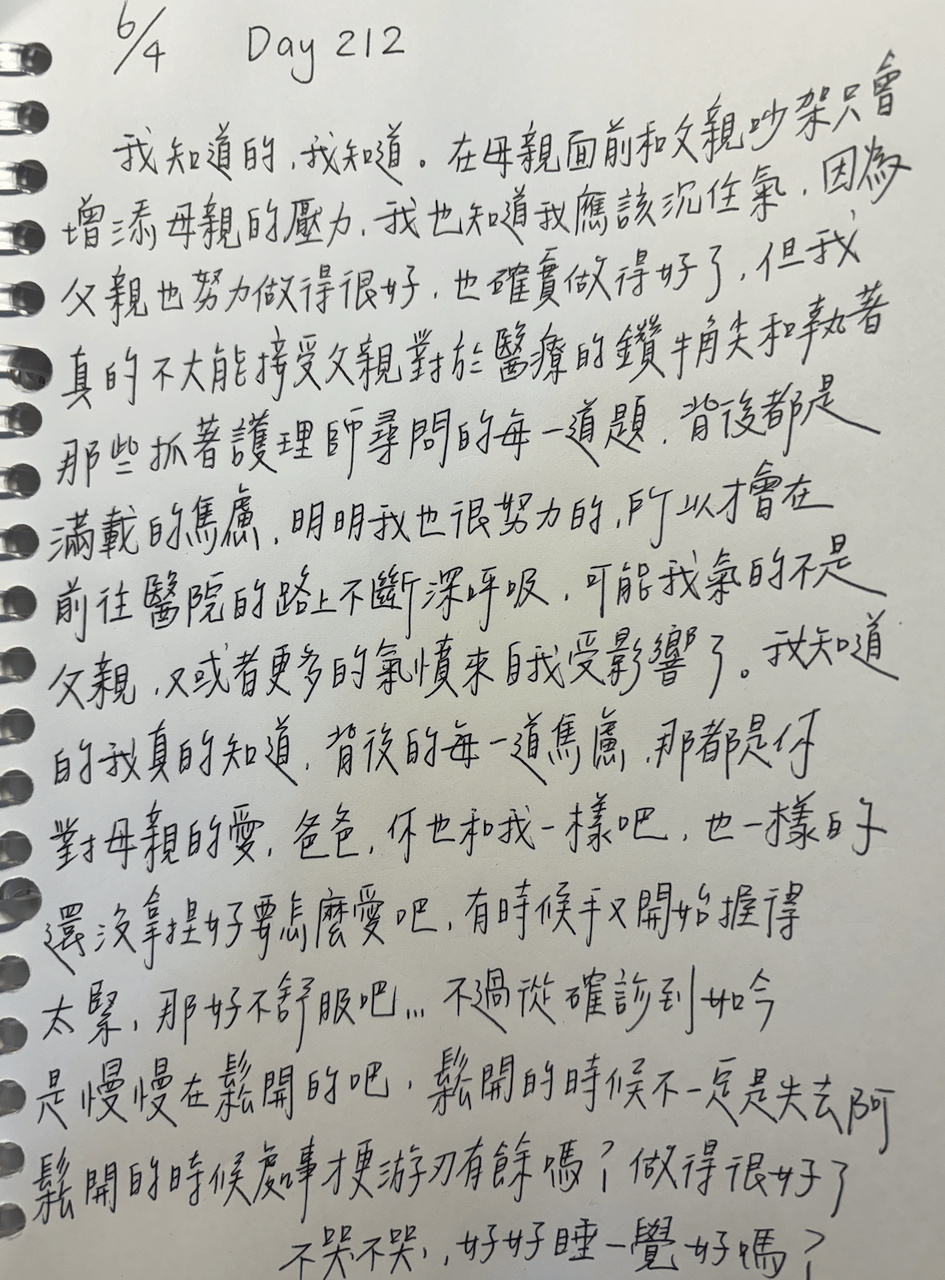 6/4 Day 212
我知道的，我知道。在母親面前和父親吵架只會
增添母親的壓力，我也知道我應該沉住氣，因為
父親也努力做得很好，也確實做得好了，但我
真的不大能接受父親對於醫療的鑽牛角尖和執著
那些抓著護理師尋問的每一道題，背後都是
滿載的焦慮，明明我也很努力的，所以才會在
前往醫院的路上不斷深呼吸，可能我氣的不是
父親，又或者更多的氣憤來自我受影響了。我知道
的我真的知道，背後的每一道焦慮，那都是你
對母親的愛，爸爸，你也和我一樣吧，也一樣的
還沒拿捏好要怎麼愛吧，有時候手又開始握得
太緊，那好不舒服吧…不過從確診到如今
是慢慢在鬆開的吧，鬆開的時候不一定是失去阿
鬆開的時候處事才更游刃有餘嗎？做得很好了
不哭不哭，好好睡一覺好嗎？